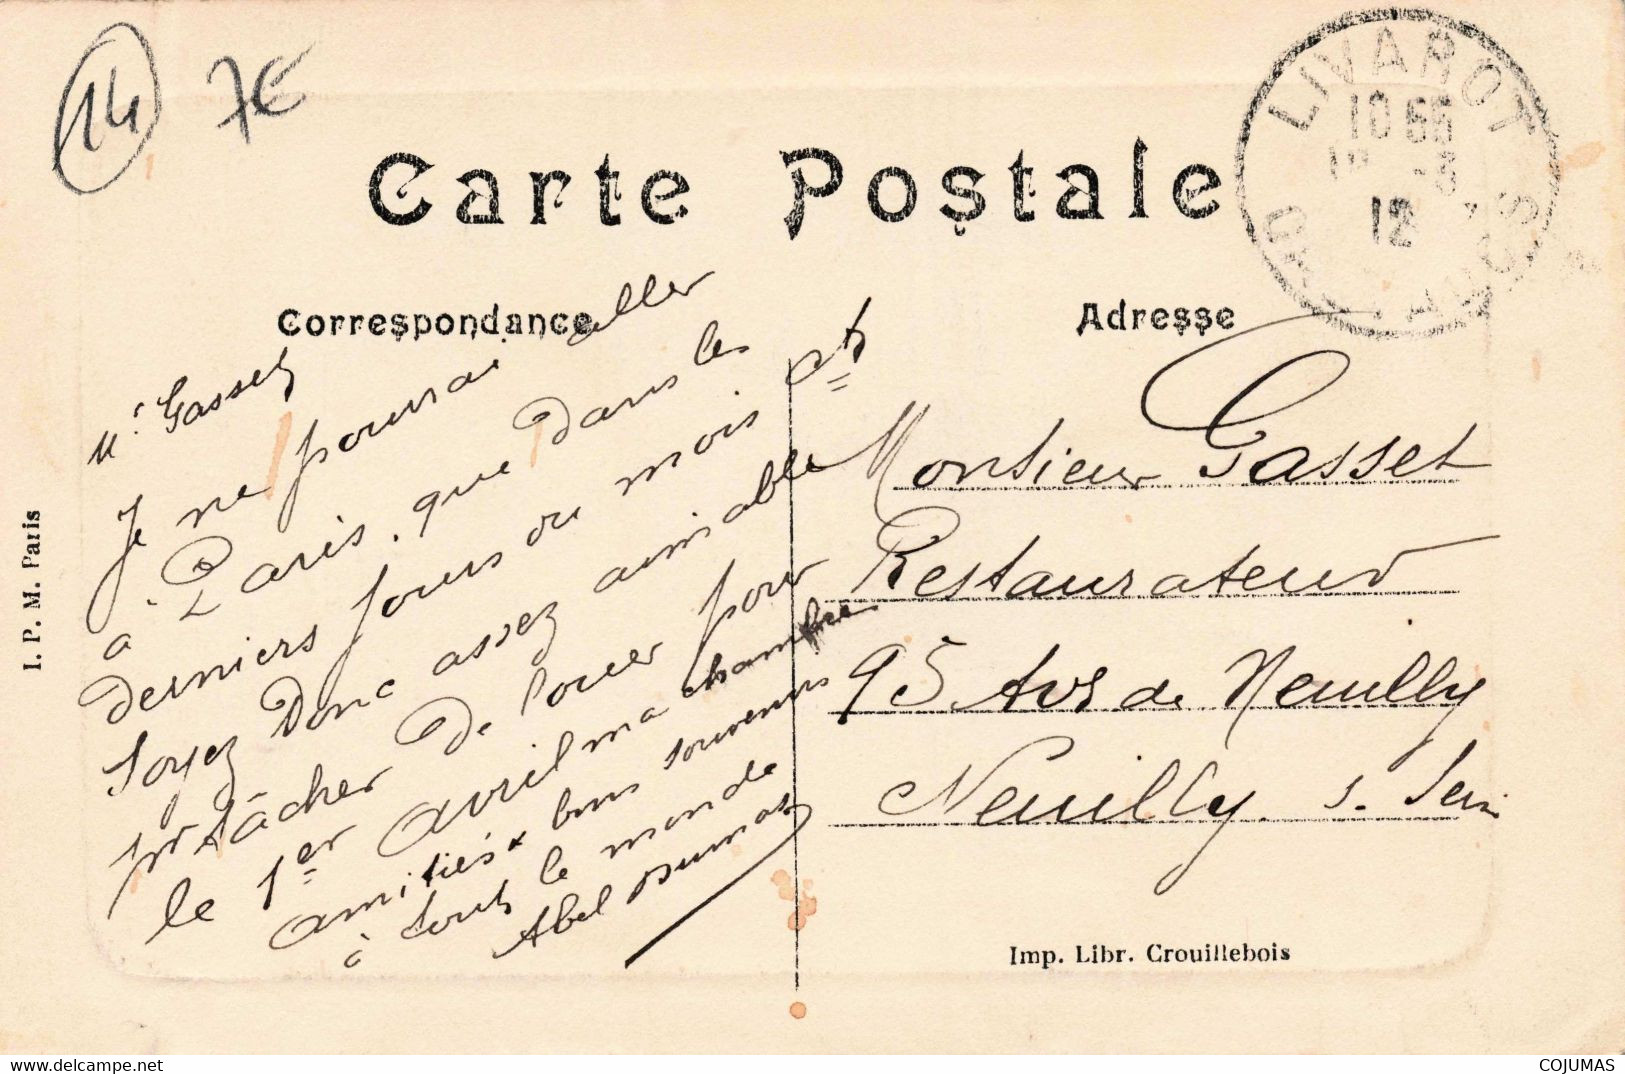 14
7€
Carte Postale
LIVAROT
10 55
12
CALVADOS
Correspondance
Adresse
Mr Gasset
Je ne pourrai aller
à Paris que dans les
derniers jours du mois et
soyez donc assez aimable
pr tâcher de louer pour
le 1er avril ma chambre
amitiés & bons souvenirs
à tout le monde
Abel Dumas
Monsieur Gasset
Restaurateur
95 Ave de Neuilly
Neuilly s. Sein
I. P. M. Paris
Imp. Libr. Crouillebois
COJUMAS